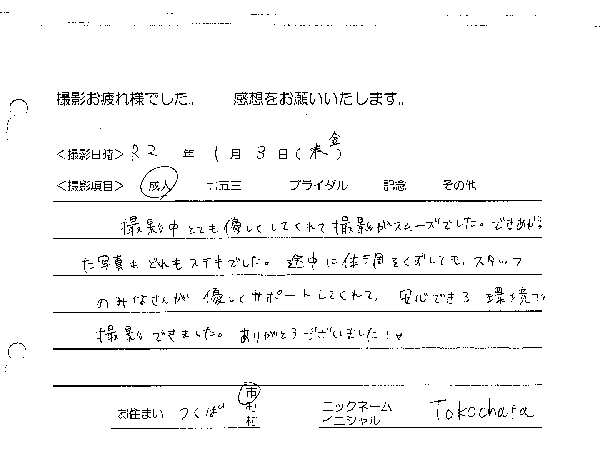 撮影お疲れ様でした。 感想をお願いいたします。
<撮影日時> R2 年 1月 3日(金)
<撮影項目> 成人 七五三 ブライダル 記念 その他
撮影中とても優しくしてくれて撮影がスムーズでした。できあがっ
た写真もどれもステキでした。途中に体調をくずしても、スタッフ
のみなさんが優しくサポートしてくれて、安心できる環境で
撮影できました。ありがとうございました!♥
お住まい つくば 市 町 村 ニックネーム イニシャル Tokochara